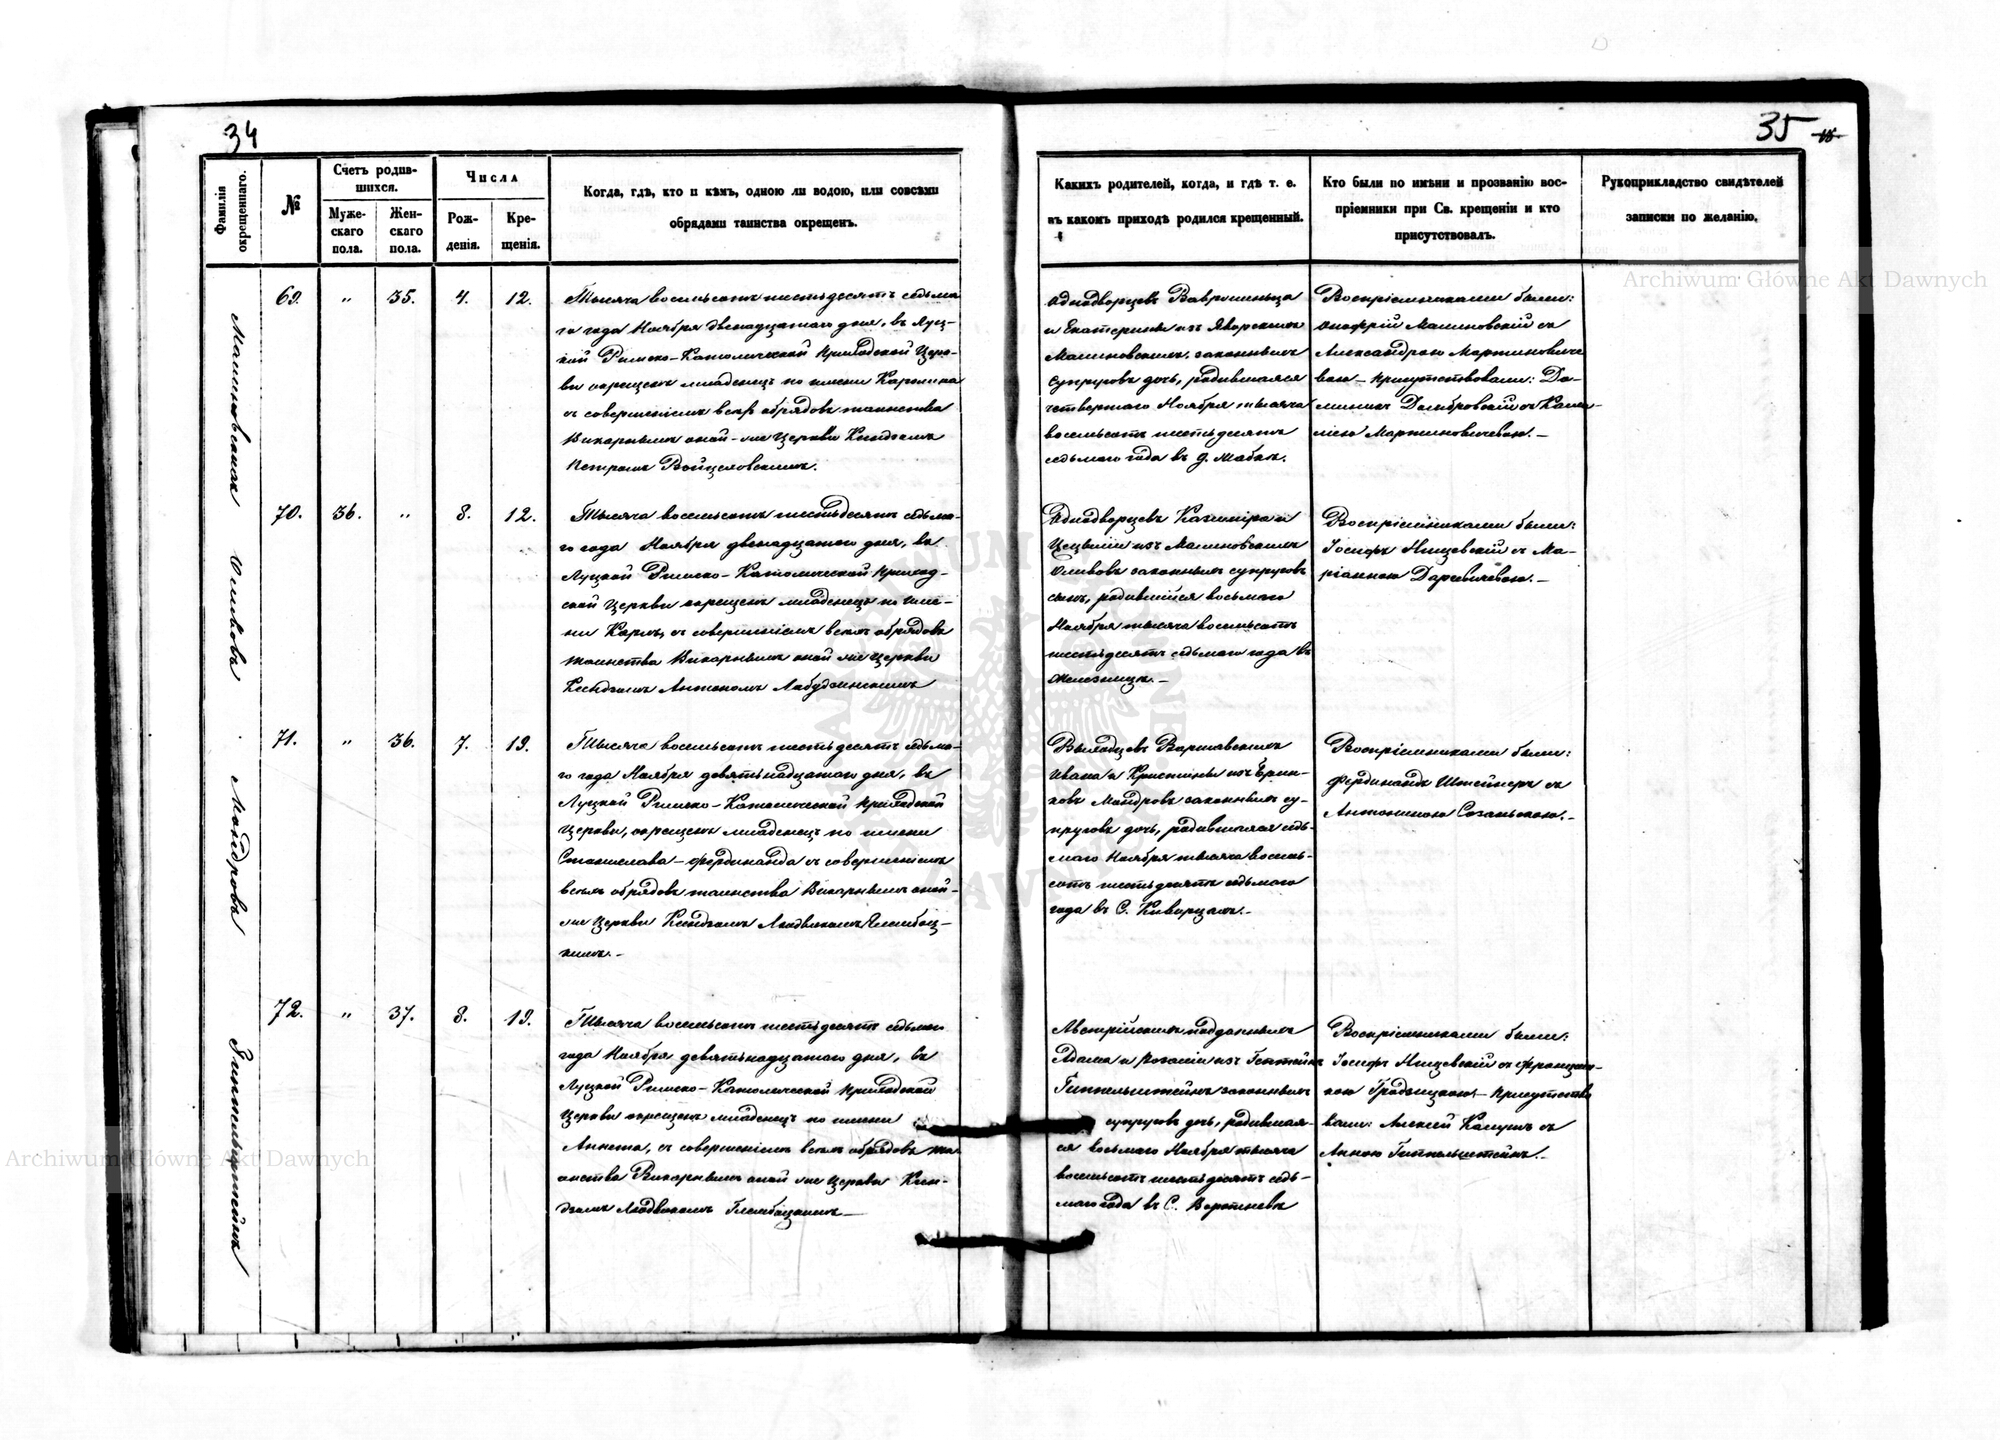 34
35
Фамилія окрещеннаго.
№
Счетъ родив-
шихся.
Муже-
скаго
пола.
Жен-
скаго
пола.
Числа
Рож-
денія.
Кре-
щенія.
Когда, гдѣ, кто и кѣмъ, одною ли водою, или совсѣми
обрядами таинства окрещенъ.
Какихъ родителей, когда, и гдѣ т. е.
въ какомъ приходѣ родился крещенный.
Кто были по имѣни и прозванію вос-
пріемники при Св. крещеніи и кто
присутствовалъ.
Рукоприкладство свидѣтелей
записки по желанію.
Archiwum Główne Akt Dawnych
Малиновская
69. " 35. 4. 12.
Тысяча восемьсотъ шестьдесятъ седьма
го года Ноября двенадцатаго дня, въ Луц-
кой Римско-Католической Приходской Церк-
ви окрещенъ младенецъ по имени Каролина
съ совершеніемъ всѣхъ обрядовъ таинства
Викарнымъ оной-же Церкви Ксендзомъ
Петромъ Войцеховскимъ.
Однодворцевъ Вавринеца
и Екатерины изъ Яворскихъ
Малиновскихъ, законныхъ
супруговъ дочь, родившаяся
четвертаго Ноября тысяча
восемьсотъ шестьдесятъ
седьмаго года въ д.
Воспріемниками были:
Онофрій Малиновскій съ
Александрою Мартиновиче
вою - присутствовали: До-
миникъ Домбровскій съ
Мартиновичевою.-
Оликовъ
70. 36. " 8. 12.
Тысяча восемьсотъ шестьдесятъ седьма-
го года Ноября двенадцатаго дня, въ
Луцкой Римско-Католической Приход-
ской Церкви окрещенъ младенецъ по име-
ни Карлъ, съ совершеніемъ всѣхъ обрядовъ
таинства Викарнымъ оной же Церкви
Ксендзомъ Антономъ Лабудзинскимъ
Однодворцевъ Казиміра и
Цециліи изъ Малиновскихъ
Оликовъ законныхъ супруговъ
сынъ, родившійся восьмаго
Ноября тысяча восемьсотъ
шестьдесятъ седьмаго года въ
Железницы.-
Воспріемниками были:
Іосифъ Нищевскій съ Ма-
ріанною Даревичевою.-
Мондровъ
71. " 36. 7. 19.
Тысяча восемьсотъ шестьдесятъ седьма-
го года Ноября девятьнадцатаго дня, въ
Луцкой Римско-Католической Приходской
Церкви, окрещенъ младенецъ по имени
Станислава-Фердинанда съ совершеніемъ
всѣхъ обрядовъ таинства Викарнымъ оной-
же Церкви Ксендзомъ Людвикомъ Глембоц-
кимъ.-
Выходцевъ Варшавскихъ
Ивана и Кристины изъ
Мондровъ законныхъ су-
пруговъ дочь, родившаяся седь-
маго Ноября тысяча восемь-
сотъ шестьдесятъ седьмаго
года въ С. Киверцахъ.-
Воспріемниками были:
Фердинандъ Штейнеръ съ
Антониною
Гиппельштейнъ
72. " 37. 8. 19.
Тысяча восемьсотъ шестьдесятъ седьмаго
года Ноября девятьнадцатаго дня, въ
Луцкой Римско-Католической Приходской
Церкви окрещенъ младенецъ по имени
Аннета, съ совершеніемъ всѣхъ обрядовъ та-
инства Викарнымъ оной же Церкви Ксен-
дзомъ Людвикомъ Глембоцкимъ.-
Австрійскихъ подданныхъ
Адама и Розаліи изъ
Гиппельштейнъ законныхъ
супруговъ дочь, родившая-
ся восьмаго Ноября тысяча
восемьсотъ шестьдесятъ седь-
маго года въ С. Воротневъ
Воспріемниками были:
Іосифъ Нищевскій съ Францишк-
кою Гродзицкою.- Присутство
вали: Алексѣй съ
Анною Гиппельштейнъ.-
Archiwum Główne Akt Dawnych